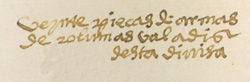 veynte pieças de armas
de plumas valadis
desta divisa